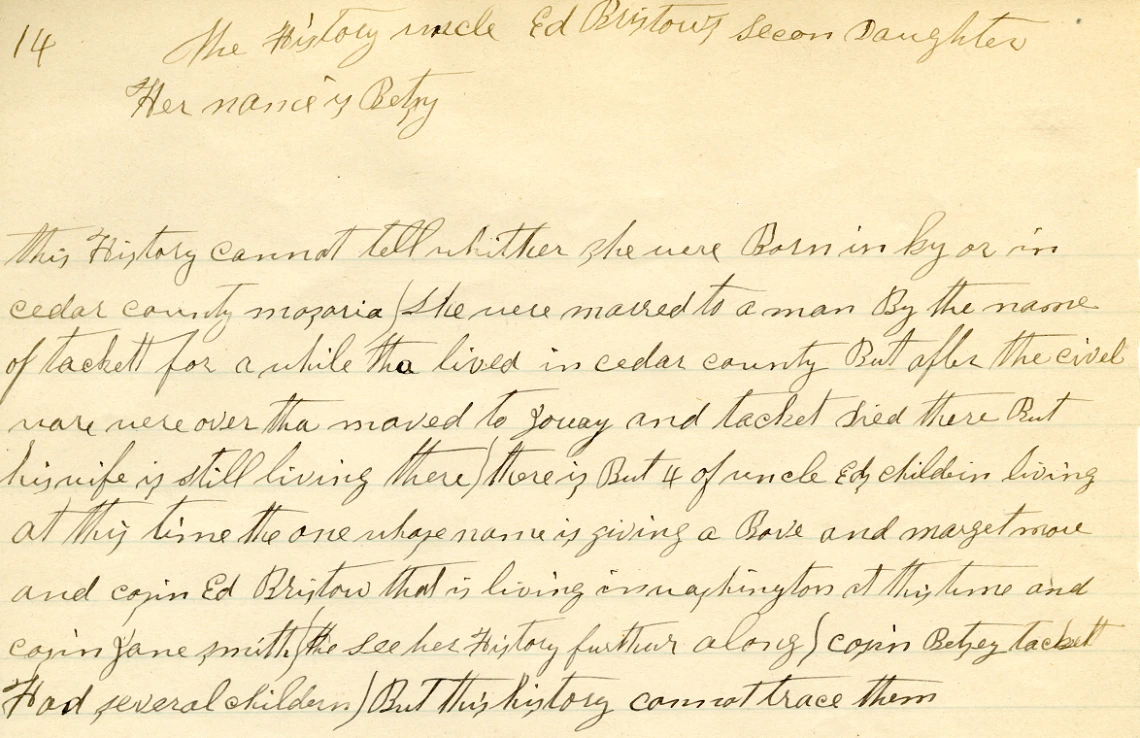 14 The History uncle Ed Bristow's secon Daughter
Her name is Betsy
this History cannot tell whither she were Born in ky or in
cedar county mozoria) she were marred to a man By the name
of tackett for a while tha lived in cedar county But after the civel
ware were over tha moved to Jouay and tacket died there But
his wife is still living there) there is But 4 of uncle Eds childern living
at this time the one whose name is giving a Bove and marget more
and cosin Ed Bristow that is living in washington at this time and
cosin Jane smith) the see her History further along) cosin Betsey tackett
Had several childern) But this history cannot trace them